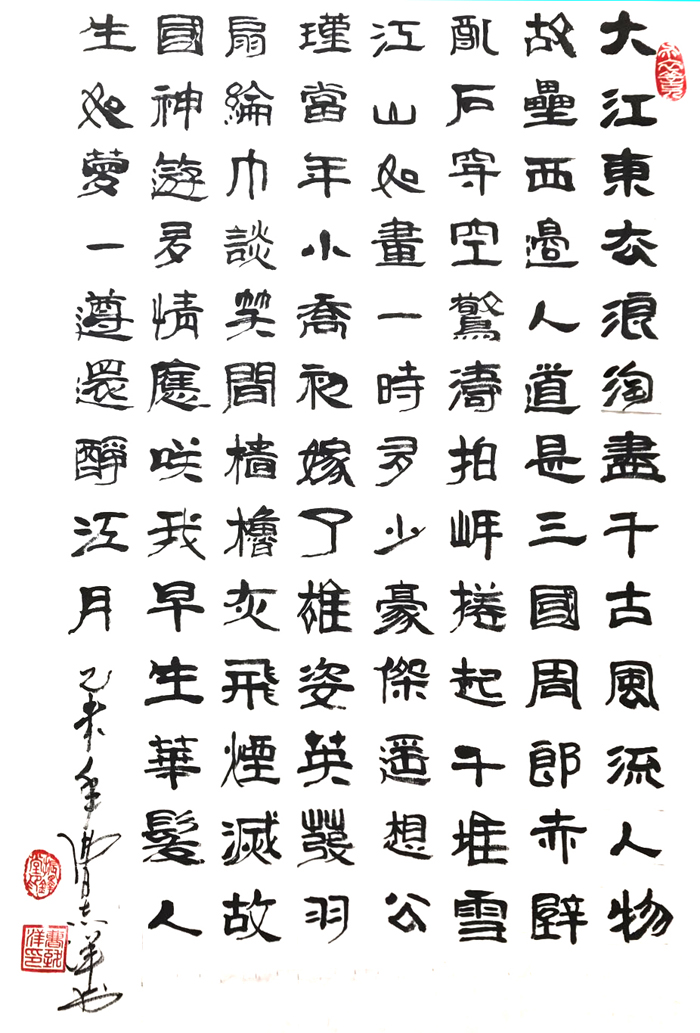 大江東去浪淘盡千古風流人物
故壘西邊人道是三國周郎赤壁
亂石穿空驚濤拍岸捲起千堆雪
江山如畫一時多少豪傑遥想公
瑾當年小喬初嫁了雄姿英發羽
扇綸巾談笑間檣櫓灰飛煙滅故
國神遊多情應咲我早生華髮人
生如夢一遵還酹江月
乙未年曹志洋书